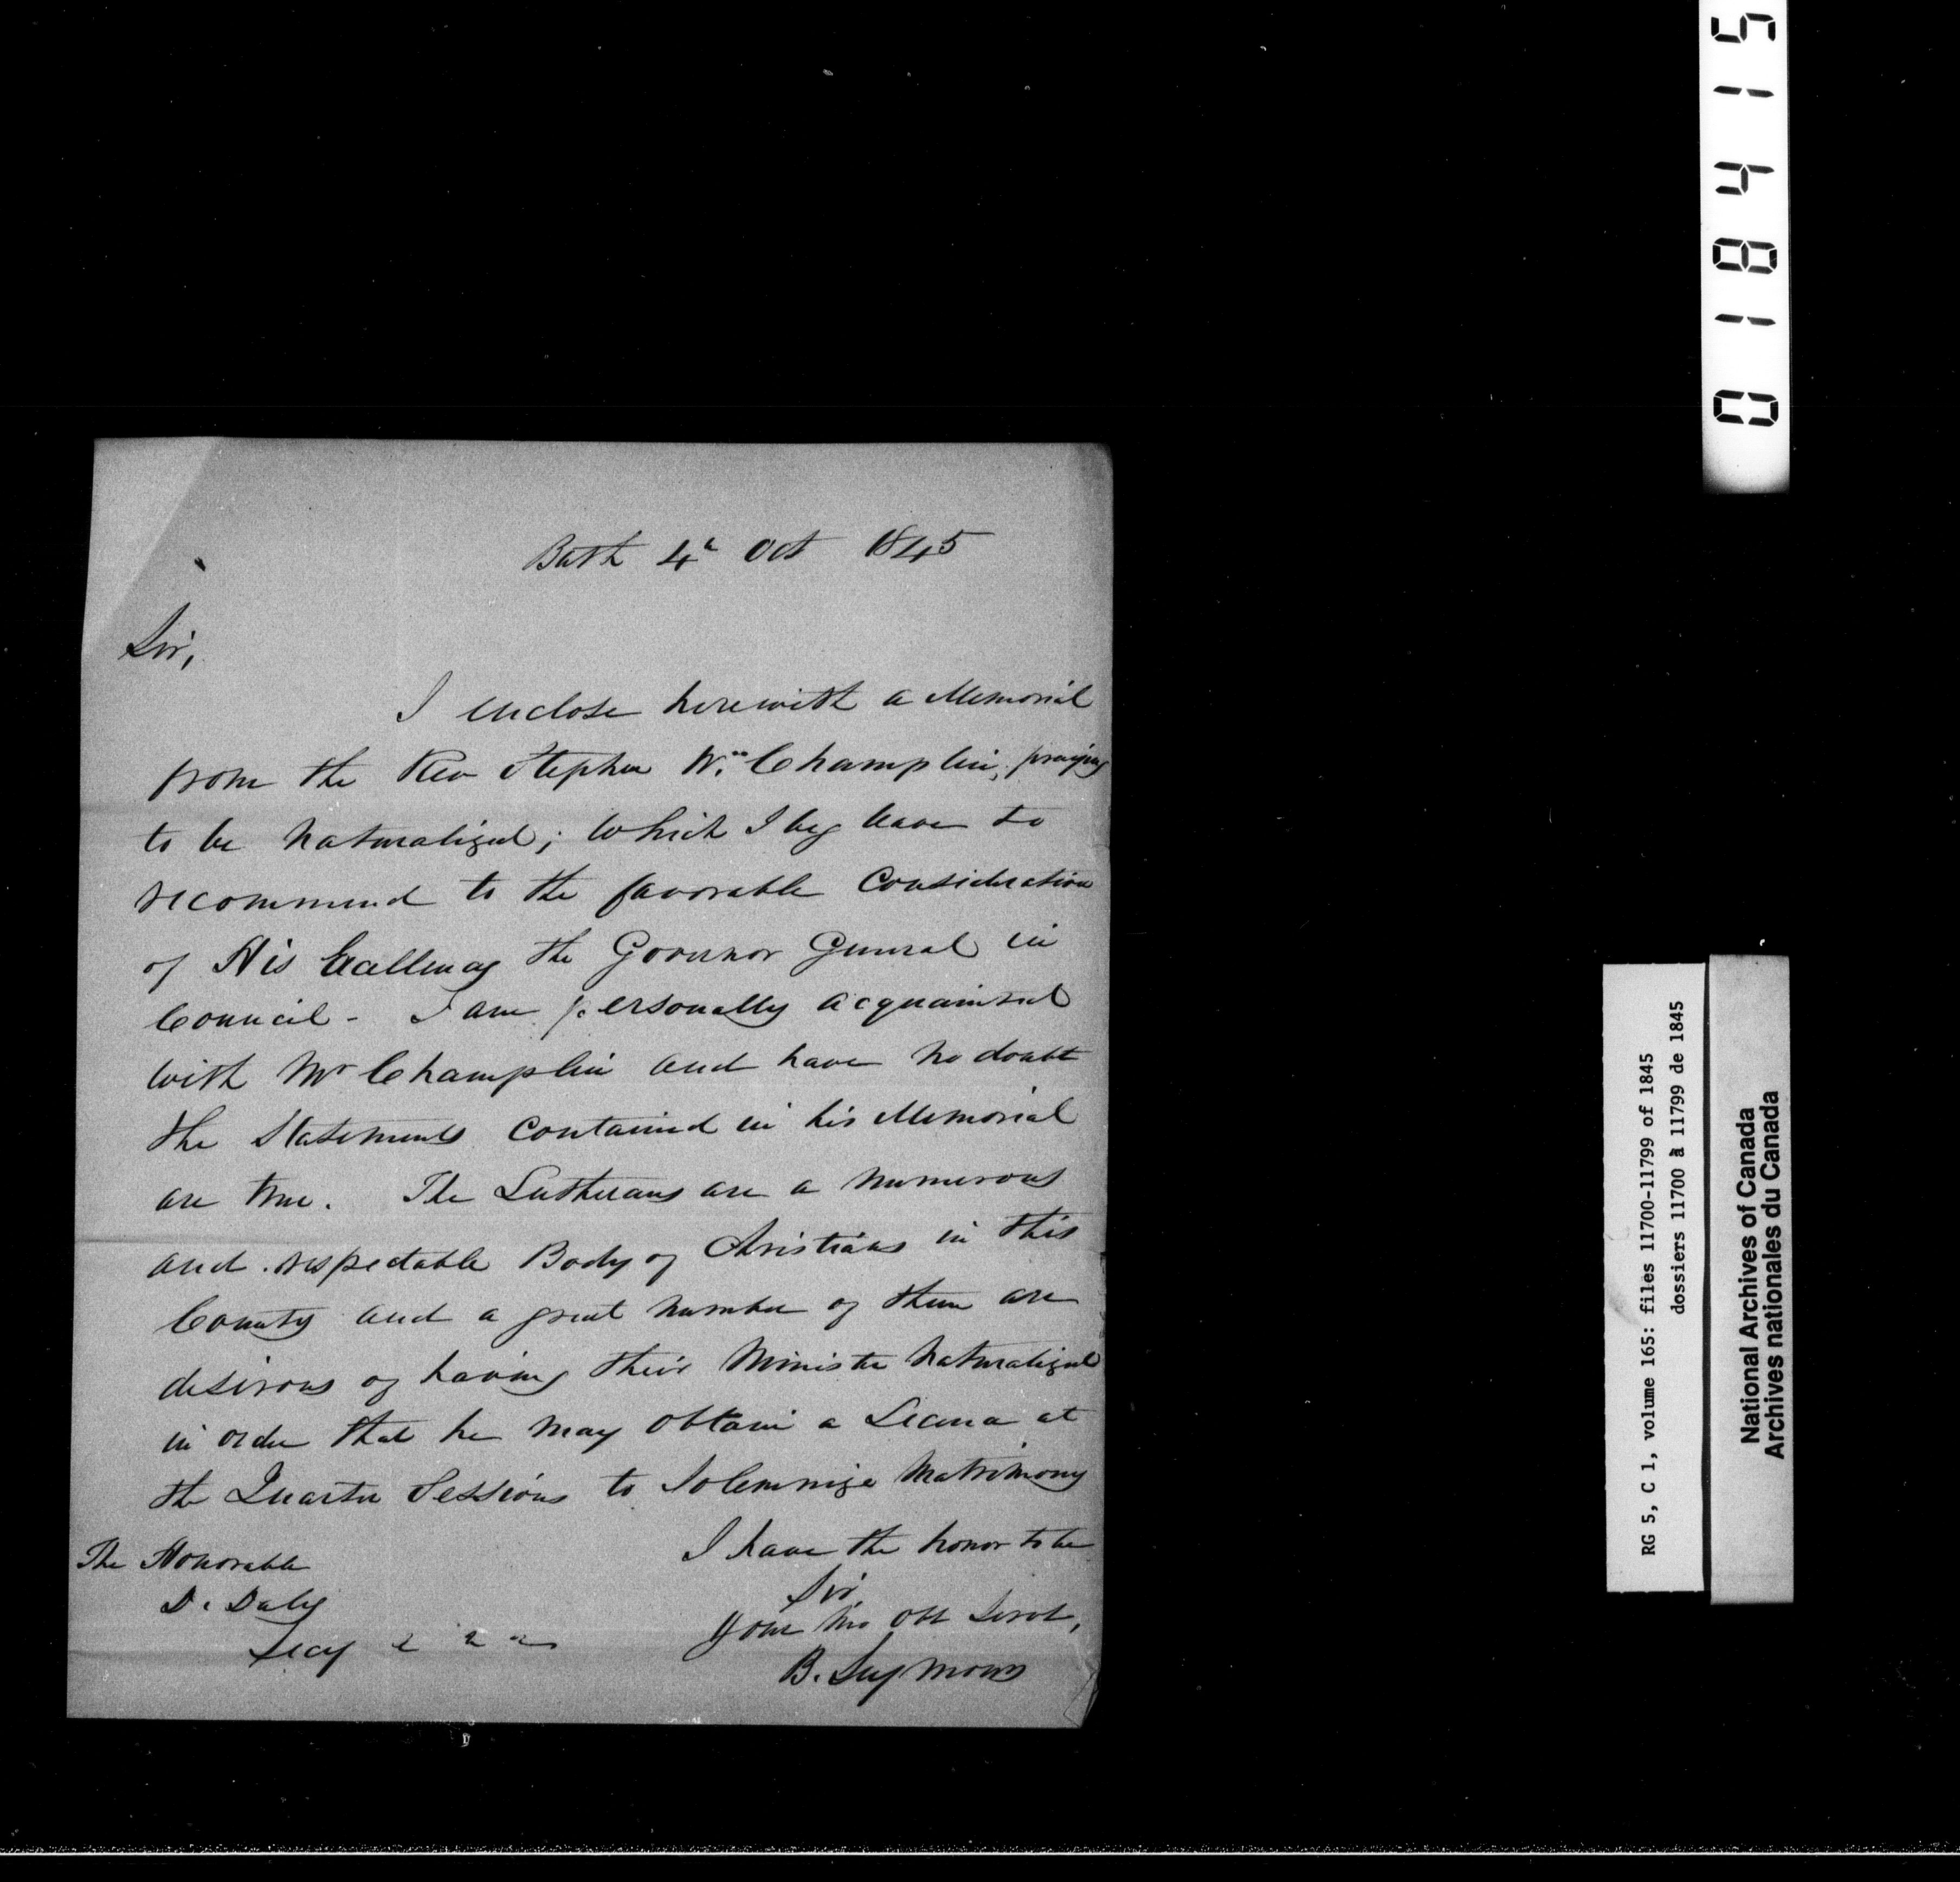 Bath 4th Oct 1845
Sir,
I enclose herewith a Memorial
from the Rev Stephen Wm Champlin, praying
to be Naturalized; which I beg leave to
recommend to the favorable Consideration
of His Excellency the Governor General in
Council - I am personally acquainted
with Mr Champlin and have no doubt
the Statements contained in his Memorial
are true. The Lutherans are a numerous
and respectable Body of Christians in this
County and a great number of them are
desirous of having their Minister Naturalized
in order that he may obtain a License at
the Quarter Sessions to Solemnize Matrimony
I have the honor to be
Sir
Your Mo Obt Servt,
B. Seymour
The Honorable
D. Daly
Secy
018415
RG 5, C 1, volume 165: files 11700-11799 of 1845
dossiers 11700 à 11799 de 1845
National Archives of Canada
Archives nationales du Canada